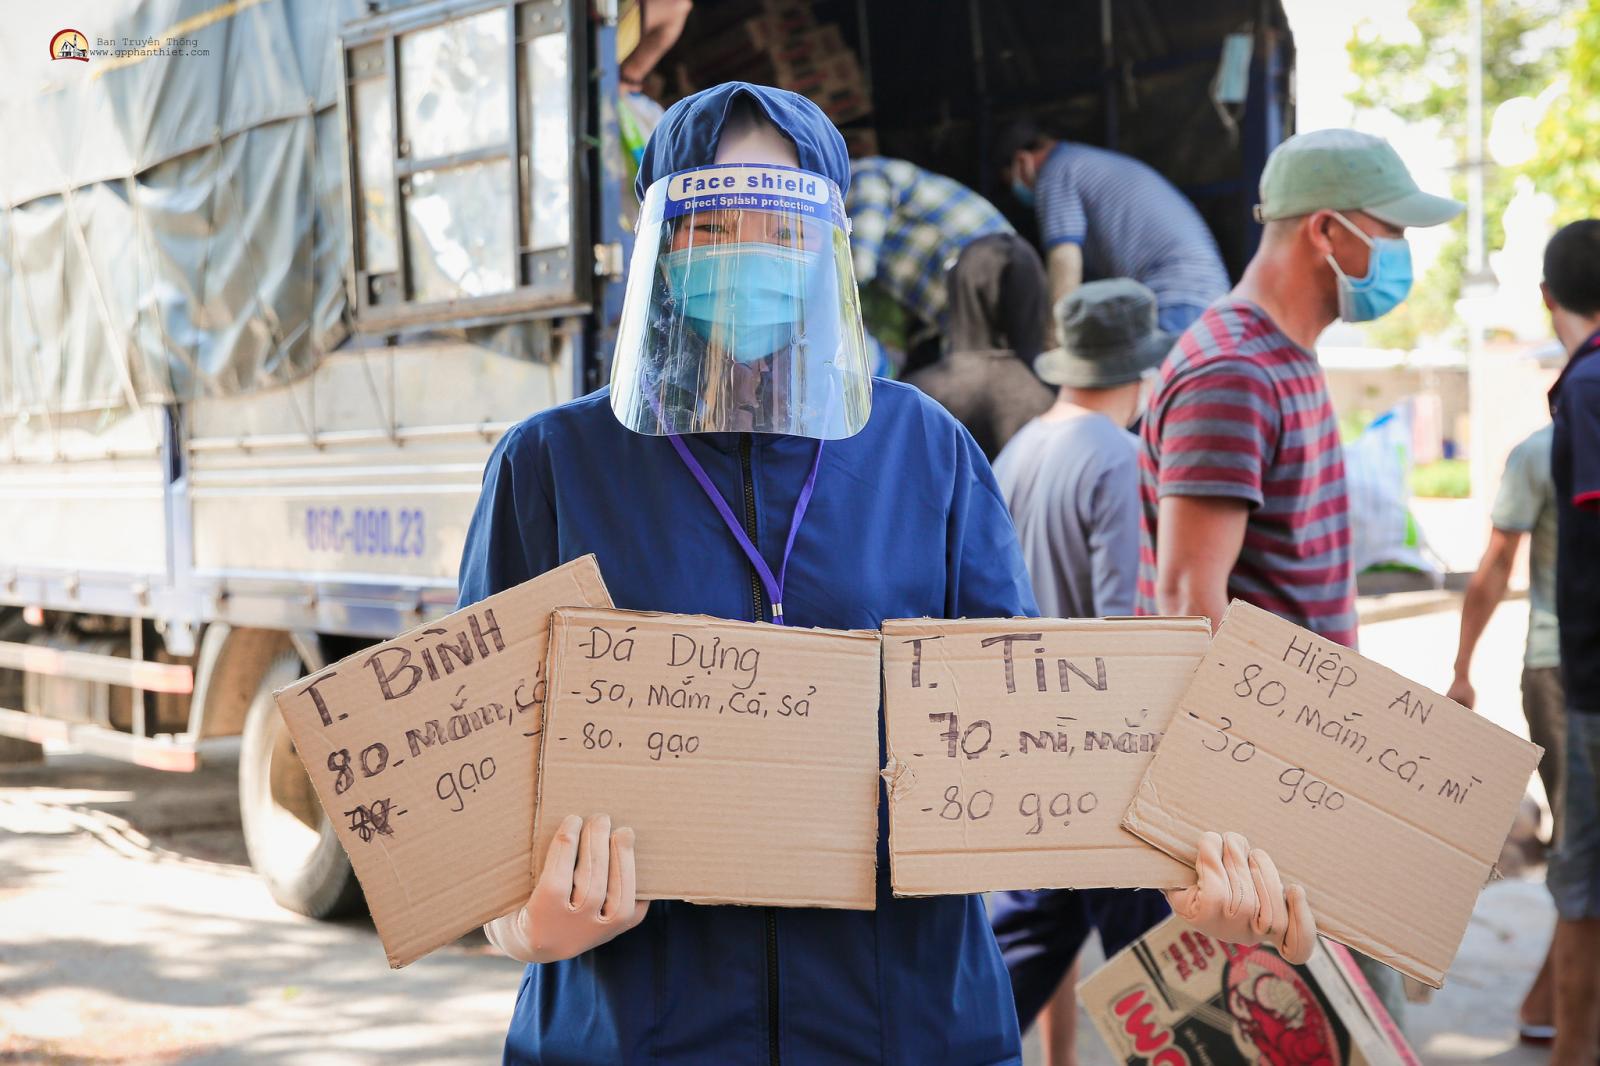 Ban Truyền Thông
www.gpphanthiet.com
Face shield
Direct Splash protection
86C-090.23
T. BÌNH
80. mắm, cá
gạo
-Đá Dựng
-50, mắm, cá, sả
-80. gạo
T. TIN
-70. mì, mắm
-80 gạo
Hiệp AN
-80, mắm, cá, mì
-30 gạo